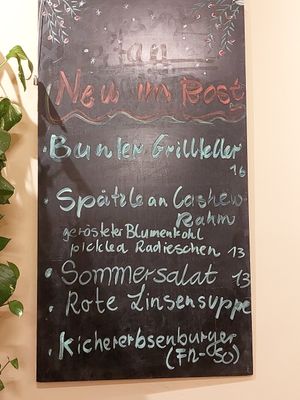 Neu im Rost
• Bunter Grillteller
16
• Spätzle an Cashew-
Rahm
gerösteter Blumenkohl
pickled Radieschen 13
• Sommersalat 13
• Rote Linsensuppe
• Kichererbsenburger
(FR-SO)